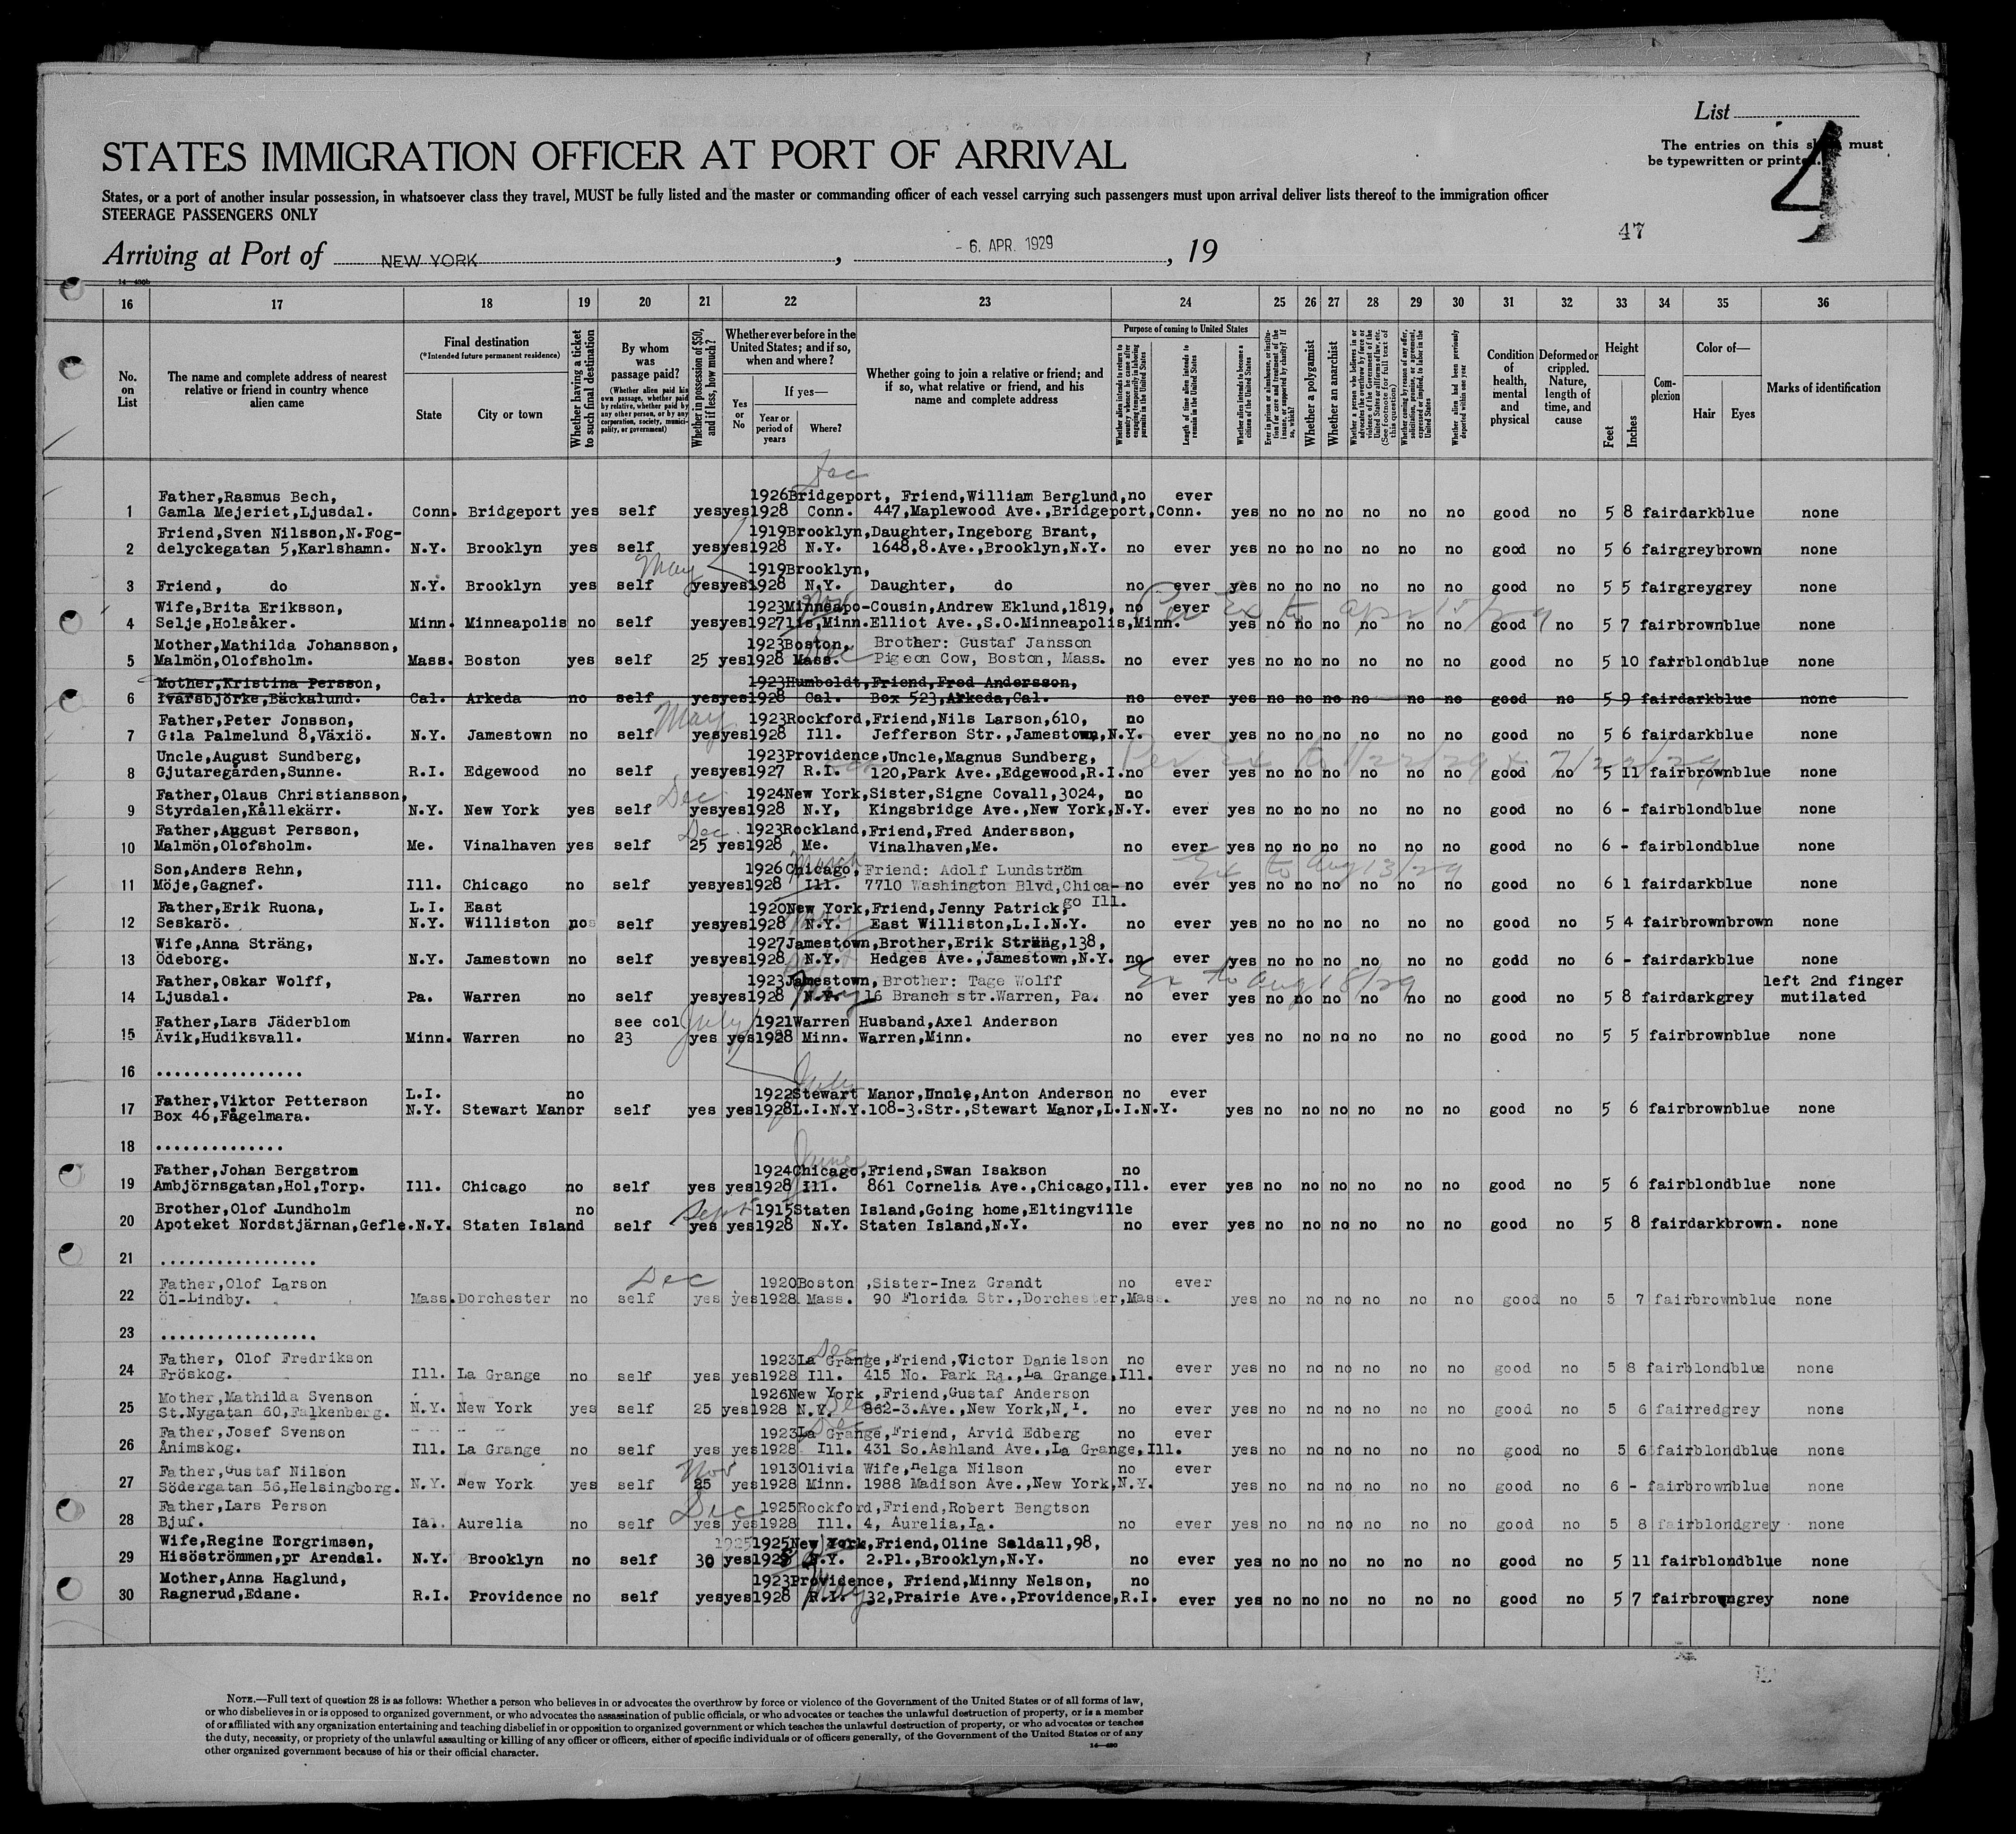 List
The entries on this must
be typewritten or printed.
4
STATES IMMIGRATION OFFICER AT PORT OF ARRIVAL
States, or a port of another insular possession, in whatsoever class they travel, MUST be fully listed and the master or commanding officer of each vessel carrying such passengers must upon arrival deliver lists thereof to the immigration officer
STEERAGE PASSENGERS ONLY
47
Arriving at Port of NEW YORK, - 6. APR. 1929, 19
16 17 18 19 20 21 22 23 24 25 26 27 28 29 30 31 32 33 34 35 36
No. on List
The name and complete address of nearest relative or friend in country whence alien came
Final destination
(*Intended future permanent residence)
State
City or town
Whether having a ticket to such final destination
By whom was passage paid?
(Whether alien paid his own passage, whether paid by relative, whether paid by any other person, or by any corporation, society, municipality, or government)
Whether in possession of $50, and if less, how much?
Whether ever before in the United States; and if so, when and where?
Yes or No
If yes—
Year or period of years
Where?
Whether going to join a relative or friend; and if so, what relative or friend, and his name and complete address
Purpose of coming to United States
Whether alien intends to return to country whence he came after engaging temporarily in laboring pursuits in the United States
Length of time alien intends to remain in the United States
Whether alien intends to become a citizen of the United States
Ever in prison or almshouse, or institution for care and treatment of the insane, or supported by charity? If so, which?
Whether a polygamist
Whether an anarchist
Whether a person who believes in or advocates the overthrow by force or violence of the Government of the United States or all forms of law, etc. (See footnote for full text of this question)
Whether coming by reason of any offer, solicitation, promise, or agreement, expressed or implied, to labor in the United States
Whether alien had been previously deported within one year
Condition of health, mental and physical
Deformed or crippled. Nature, length of time, and cause
Height
Feet
Inches
Complexion
Color of—
Hair
Eyes
Marks of identification
Dec
Father,Rasmus Bech, 1926 Bridgeport, Friend,William Berglund, no ever
1 Gamla Mejeriet,Ljusdal. Conn. Bridgeport yes self yes yes 1928 Conn. 447,Maplewood Ave.,Bridgeport,Conn. yes no no no no no no good no 5 8 fair dark blue none
Friend,Sven Nilsson,N.Fog- 1919 Brooklyn, Daughter,Ingeborg Brant,
2 delyckegatan 5,Karlshamn. N.Y. Brooklyn yes self yes yes 1928 N.Y. 1648,8.Ave.,Brooklyn,N.Y. no ever yes no no no no no no good no 5 6 fair grey brown none
May 1919 Brooklyn,
3 Friend, do N.Y. Brooklyn yes self yes yes 1928 N.Y. Daughter, do no ever yes no no no no no no good no 5 5 fair grey grey none
Wife,Brita Eriksson, 1923 Minneapo- Cousin,Andrew Eklund,1819, no ever
4 Selje,Holsåker. Minn. Minneapolis no self yes yes 1927 lis,Minn. Elliot Ave.,S.O.Minneapolis,Minn. yes no no no no no no good no 5 7 fair brown blue none
Mother,Mathilda Johansson, 1923 Boston, Brother: Gustaf Jansson
5 Malmön,Olofsholm. Mass. Boston yes self 25 yes 1928 Mass. Pigeon Cow, Boston, Mass. no ever yes no no no no no no good no 5 10 fair blond blue none
Mother,Kristina Persson, 1923 Humboldt, Friend,Fred Andersson,
6 Ivarsbjörke,Bäckalund. Cal. Arkeda no self yes yes 1928 Cal. Box 523,Arkeda,Cal. no ever yes no no no no no no good no 5 9 fair dark blue none
Father,Peter Jonsson, May 1923 Rockford, Friend,Nils Larson,610, no
7 G:la Palmelund 8,Växiö. N.Y. Jamestown no self yes yes 1928 Ill. Jefferson Str.,Jamestown,N.Y. ever yes no no no no no no good no 5 6 fair dark blue none
Uncle,August Sundberg, 1923 Providence, Uncle,Magnus Sundberg,
8 Gjutaregården,Sunne. R.I. Edgewood no self yes yes 1927 R.I. 120,Park Ave.,Edgewood,R.I. no ever yes no no no no no no good no 5 11 fair brown blue none
Father,Olaus Christiansson, Dec 1924 New York, Sister,Signe Covall,3024, no
9 Styrdalen,Kållekärr. N.Y. New York yes self yes yes 1928 N.Y, Kingsbridge Ave.,New York,N.Y. ever yes no no no no no no good no 6 - fair blond blue none
Father,August Persson, Dec. 1923 Rockland, Friend,Fred Andersson,
10 Malmön,Olofsholm. Me. Vinalhaven yes self 25 yes 1928 Me. Vinalhaven,Me. no ever yes no no no no no no good no 6 - fair blond blue none
Son,Anders Rehn, March 1926 Chicago, Friend: Adolf Lundström Ex to Aug 13/29
11 Möje,Gagnef. Ill. Chicago no self yes yes 1928 Ill. 7710 Washington Blvd,Chica- no ever yes no no no no no no good no 6 1 fair dark blue none
go Ill.
Father,Erik Ruona, L.I. East 1920 New York, Friend,Jenny Patrick,
12 Seskarö. N.Y. Williston no self yes yes 1928 N.Y. East Williston,L.I.N.Y. no ever yes no no no no no no good no 5 4 fair brown brown none
Wife,Anna Sträng, 1927 Jamestown, Brother,Erik Sträng,138,
13 Ödeborg. N.Y. Jamestown no self yes yes 1928 N.Y. Hedges Ave.,Jamestown,N.Y. no ever yes no no no no no no godd no 6 - fair dark blue none
Father,Oskar Wolff, 1923 Jamestown, Brother: Tage Wolff Ex to Aug 18/29 left 2nd finger
14 Ljusdal. Pa. Warren no self yes yes 1928 N.Y. 16 Branch str.Warren, Pa. no ever yes no no no no no no good no 5 8 fair dark grey mutilated
Father,Lars Jäderblom see col July 1921 Warren Husband,Axel Anderson
15 Ävik,Hudiksvall. Minn. Warren no 23 yes yes 1928 Minn. Warren,Minn. no ever yes no no no no no no good no 5 5 fair brown blue none
16 ................
Father,Viktor Petterson L.I. no July 1922 Stewart Manor, Uncle,Anton Anderson no ever
17 Box 46,Fågelmara. N.Y. Stewart Manor self yes yes 1928 L.I.N.Y. 108-3.Str.,Stewart Manor,L.I.N.Y. yes no no no no no no good no 5 6 fair brown blue none
18 ..............
Father,Johan Bergstrom June 1924 Chicago, Friend,Swan Isakson no
19 Ambjörnsgatan,Hol,Torp. Ill. Chicago no self yes yes 1928 Ill. 861 Cornelia Ave.,Chicago,Ill. ever yes no no no no no no good no 5 6 fair blond blue none
Brother,Olof Lundholm no Sept 1915 Staten Island, Going home,Eltingville
20 Apoteket Nordstjärnan,Gefle. N.Y. Staten Island self yes yes 1928 N.Y. Staten Island,N.Y. no ever yes no no no no no no good no 5 8 fair dark brown. none
21 .................
Father,Olof Larson Dec 1920 Boston , Sister-Inez Grandt no ever
22 Öl-Lindby. Mass. Dorchester no self yes yes 1928 Mass. 90 Florida Str.,Dorchester,Mass. yes no no no no no no good no 5 7 fair brown blue none
23 .................
Father, Olof Fredrikson Dec 1923 La Grange, Friend,Victor Danielson no
24 Fröskog. Ill. La Grange no self yes yes 1928 Ill. 415 No. Park Rd.,La Grange,Ill. ever yes no no no no no no good no 5 8 fair blond blue none
Mother,Mathilda Svenson 1926 New York , Friend,Gustaf Anderson
25 St.Nygatan 60,Falkenberg. N.Y. New York yes self 25 yes 1928 N.Y. 862-3.Ave.,New York,N.Y. no ever yes no no no no no no good no 5 6 fair red grey none
Father,Josef Svenson Dec 1923 La Grange, Friend, Arvid Edberg no ever
26 Ånimskog. Ill. La Grange no self yes yes 1928 Ill. 431 So.Ashland Ave.,La Grange,Ill. yes no no no no no no good no 5 6 fair blond blue none
Father,Gustaf Nilson Nov 1913 Olivia Wife,Helga Nilson no ever
27 Södergatan 56,Helsingborg. N.Y. New York yes self 25 yes 1928 Minn. 1988 Madison Ave.,New York,N.Y. yes no no no no no no good no 6 - fair brown blue none
Father,Lars Person Dec 1925 Rockford, Friend,Robert Bengtson
28 Bjuf. Ia. Aurelia no self yes yes 1928 Ill. 4, Aurelia,Ia. no ever yes no no no no no no good no 5 8 fair blond grey none
Wife,Regine Torgrimsen, 1925 1925 New York, Friend,Oline Saldall,98,
29 Hisöströmmen,pr Arendal. N.Y. Brooklyn no self 30 yes N.Y. 2.Pl.,Brooklyn,N.Y. no ever yes no no no no no no good no 5 11 fair blond blue none
Mother,Anna Haglund, 1923 Providence, Friend,Minny Nelson, no
30 Ragnerud,Edane. R.I. Providence no self yes yes 1928 R.I. 32,Prairie Ave.,Providence,R.I. ever yes no no no no no no good no 5 7 fair brown grey none
NOTE.—Full text of question 28 is as follows: Whether a person who believes in or advocates the overthrow by force or violence of the Government of the United States or of all forms of law,
or who disbelieves in or is opposed to organized government, or who advocates the assassination of public officials, or who advocates or teaches the unlawful destruction of property, or is a member
of or affiliated with any organization entertaining and teaching disbelief in or opposition to organized government or which teaches the unlawful destruction of property, or who advocates or teaches
the duty, necessity, or propriety of the unlawful assaulting or killing of any officer or officers, either of specific individuals or of officers generally, of the Government of the United States or of any
other organized government because of his or their official character.
14—490